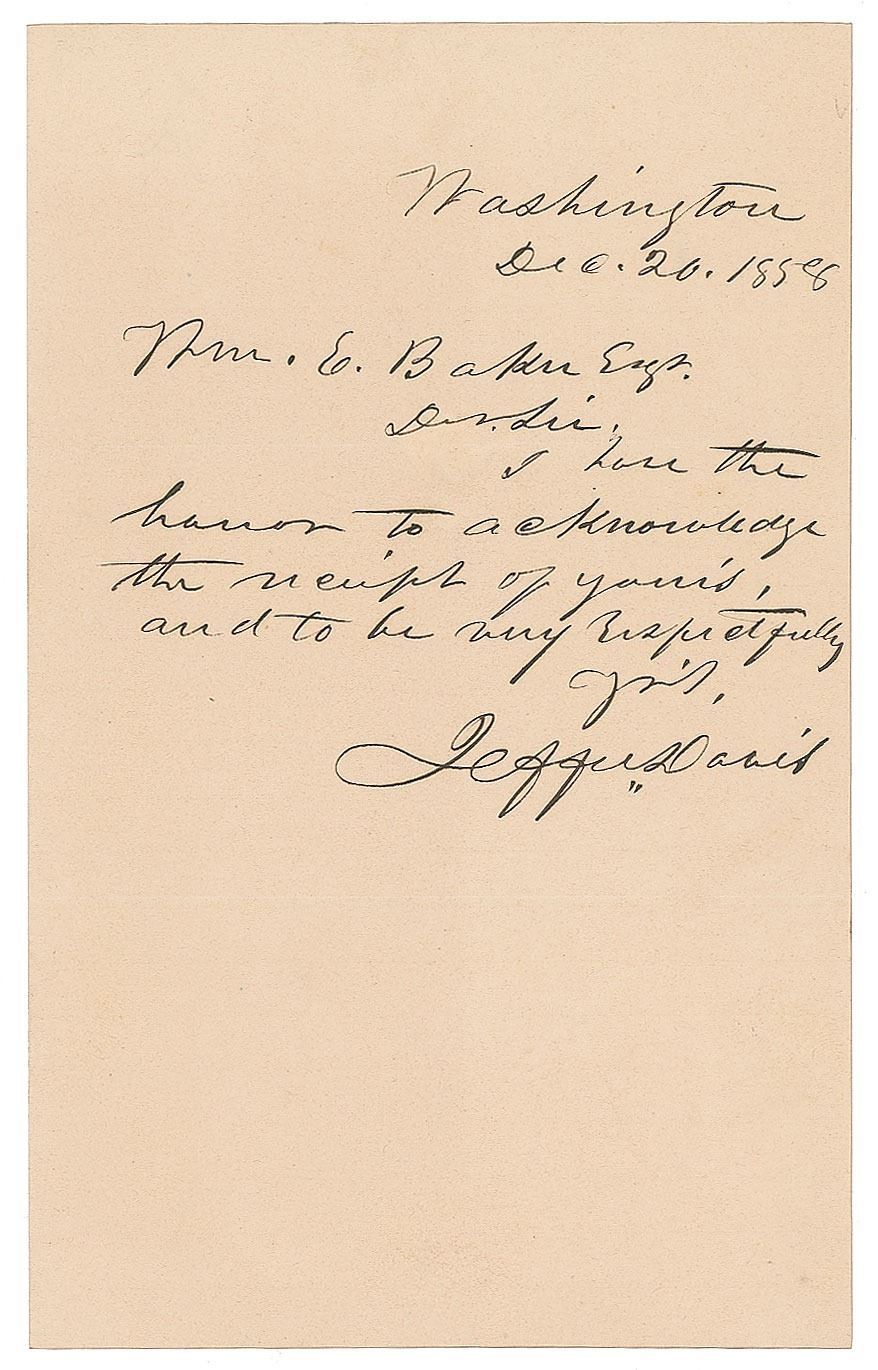 Washington
Dec. 20. 1858
Wm. E. Baker Esqr.
Dr. Sir,
I have the
honor to acknowledge
the receipt of yours,
and to be very respectfully
yr's,
Jeffer. Davis